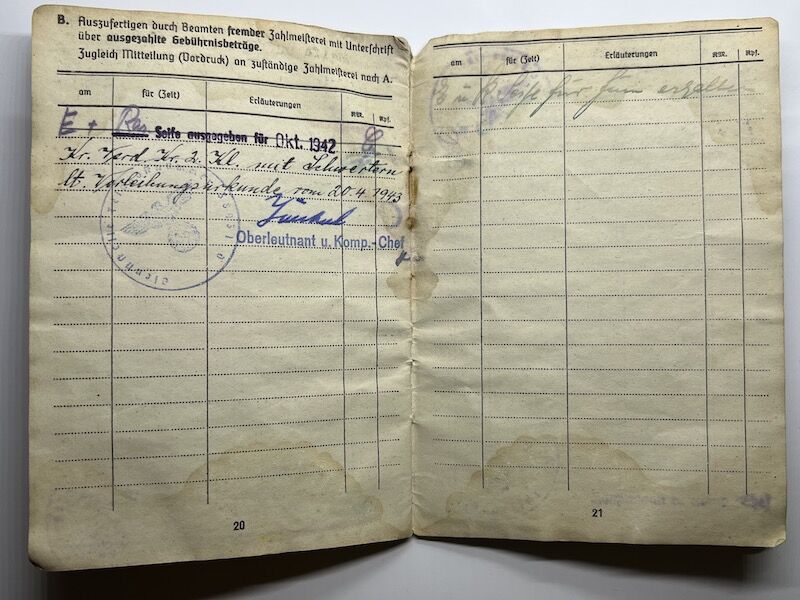 B. Auszufertigen durch Beamten fremder Zahlmeisterei mit Unterschrift
über ausgezahlte Gebührnisbeträge.
Zugleich Mitteilung (Vordruck) an zuständige Zahlmeisterei nach A.
am für (Zeit) Erläuterungen RM. Rpf.
E + Ras Seife ausgegeben für Okt. 1942
Kr. Verd. Kr. 2. Kl. mit Schwertern
lt. Verleihungsurkunde vom 20.4.1943
Oberleutnant u. Komp.-Chef
20
am für (Zeit) Erläuterungen RM. Rpf.
E u. R. Seife für Juni erhalten
21